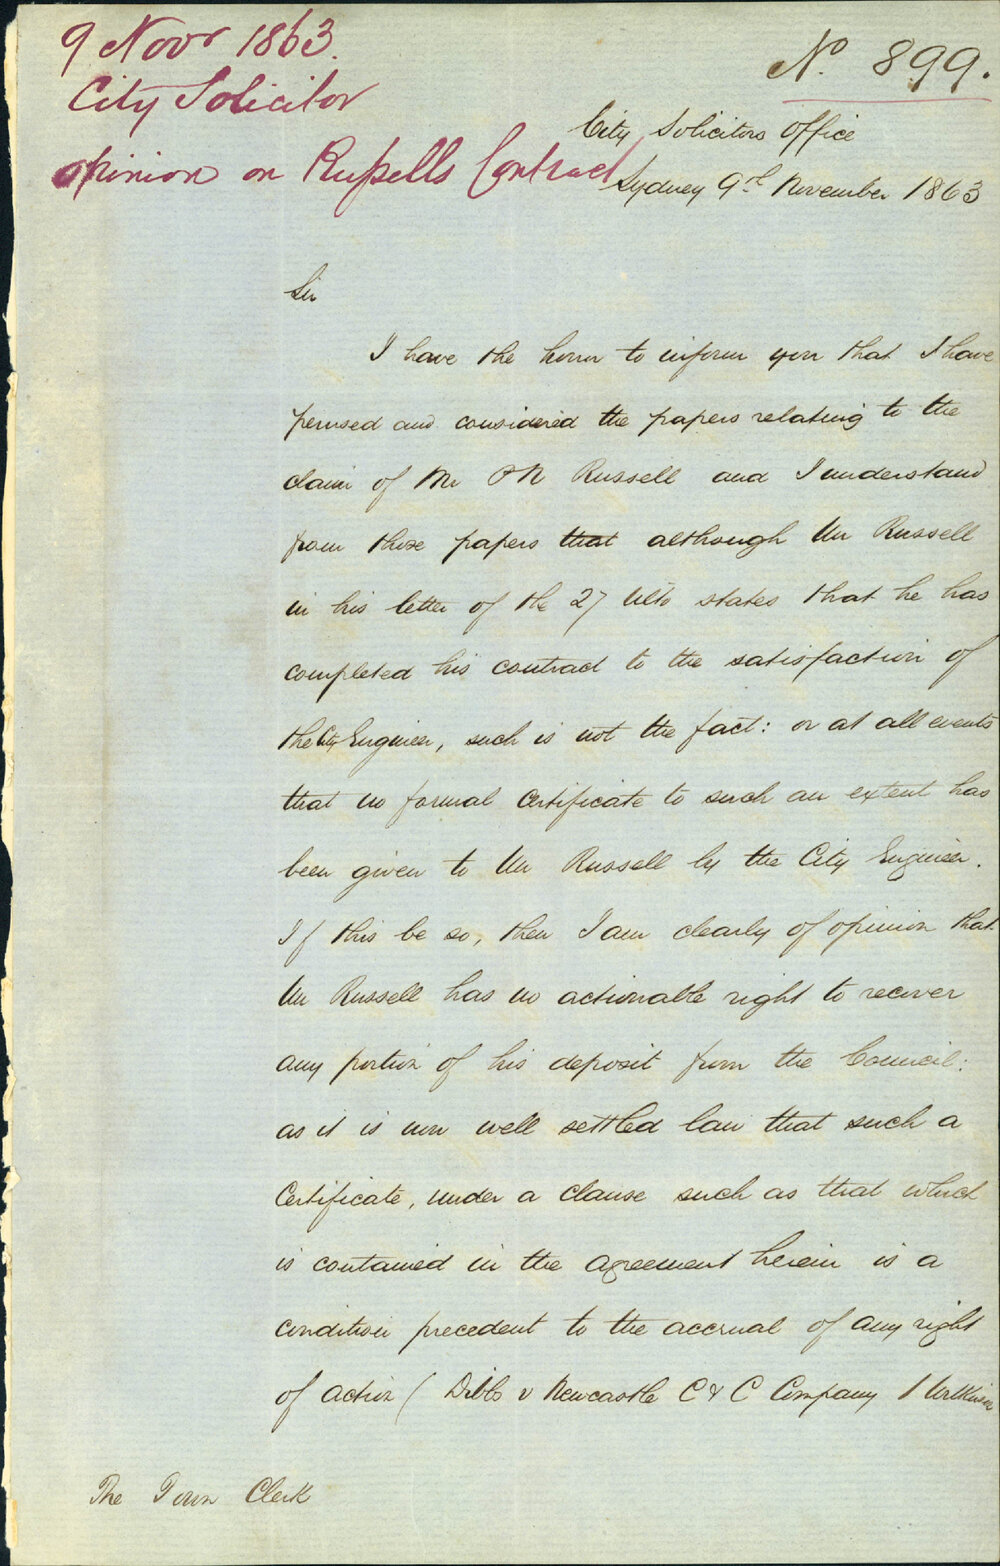 9 Novr 1863.
City Solicitor
opinion on Russells Contract
No. 899.
City Solicitors Office
Sydney 9th November 1863
Sir
I have the honor to inform you that I have
perused and considered the papers relating to the
claim of Mr P N Russell and I understand
from these papers that although Mr Russell
in his letter of the 27 Ulto states that he has
completed his contract to the satisfaction of
the City Engineer, such is not the fact: or at all events
that no formal Certificate to such an extent has
been given to Mr Russell by the City Engineer.
If this be so, then I am clearly of opinion that
Mr Russell has no actionable right to recover
any portion of his deposit from the Council:
as it is now well settled law that such a
Certificate, under a clause such as that which
is contained in the Agreement herein is a
condition precedent to the accrual of any right
of action ( v Newcastle C & C Company 1
The Town Clerk